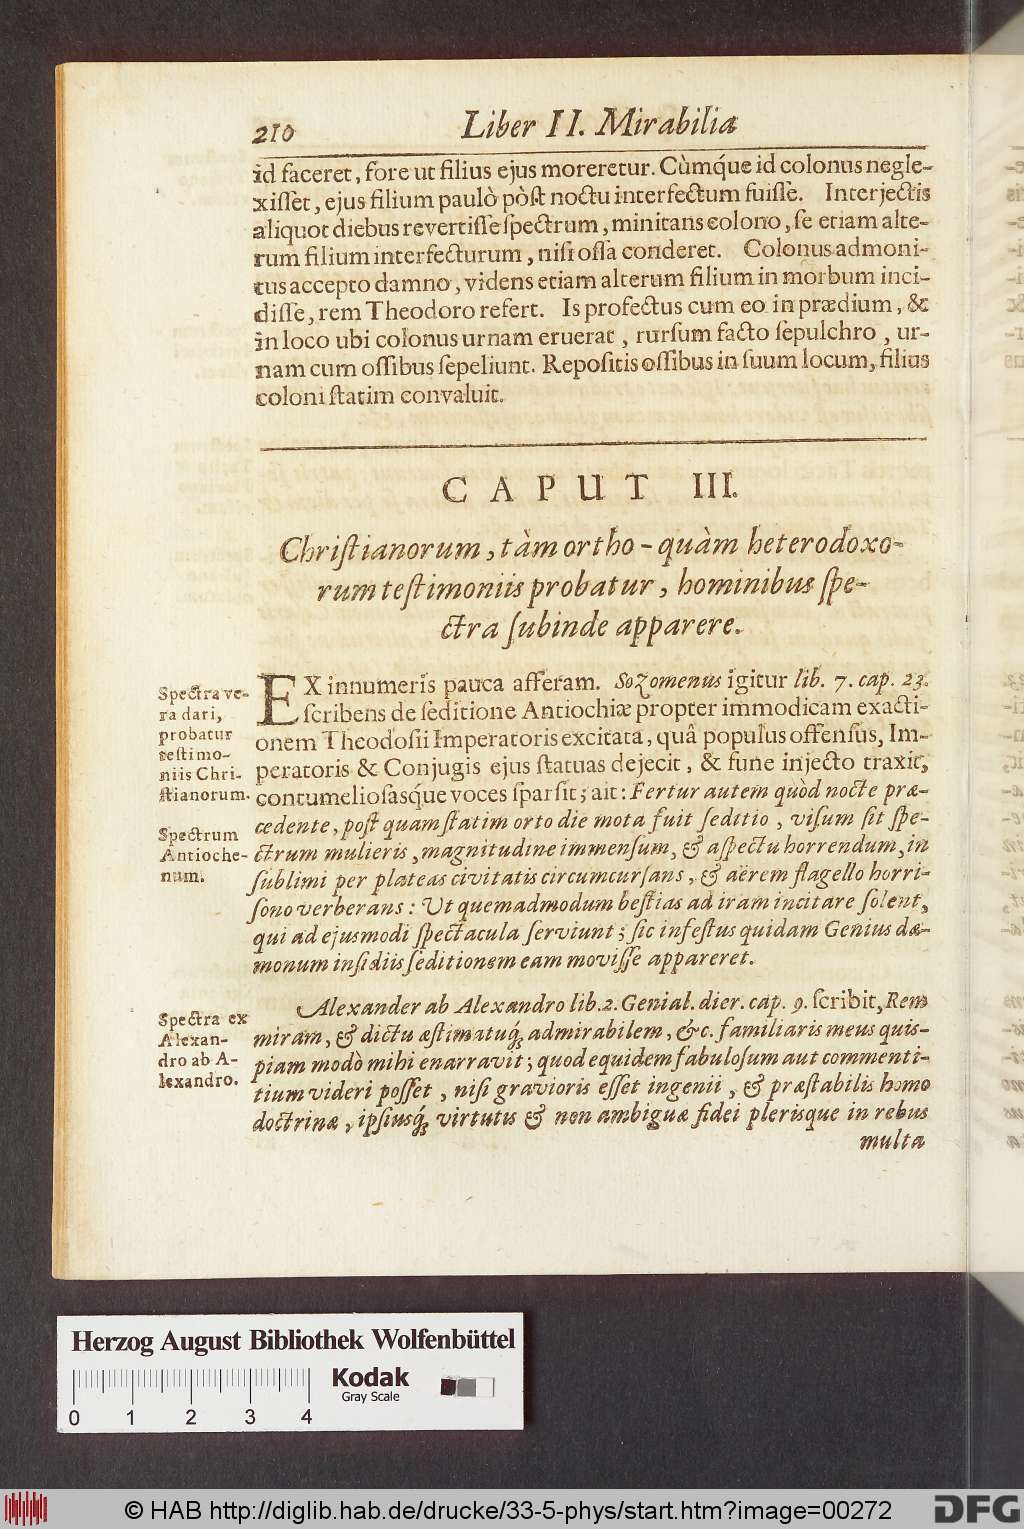 210 Liber II. Mirabilia
id faceret, fore ut filius ejus moreretur. Cùmq́ue id colonus negle-
xisset, ejus filium paulò pòst noctu interfectum fuisse. Interjectis
aliquot diebus revertisse spectrum, minitans colono, se etiam alte-
rum filium interfecturum, nisi ossa conderet. Colonus admoni-
tus accepto damno, videns etiam alterum filium in morbum inci-
disse, rem Theodoro refert. Is profectus cum eo in prædium, &
in loco ubi colonus urnam eruerat, rursum facto sepulchro, ur-
nam cum ossibus sepeliunt. Repositis ossibus in suum locum, filius
coloni statim convaluit.
CAPUT III.
Christianorum, tàm ortho-quàm heterodoxo-
rum testimoniis probatur, hominibus spe-
ctra subinde apparere.
Spectra ve-
ra dari,
probatur
testimo-
niis Chri-
stianorum.
EX innumeris pauca afferam. Sozomenus igitur lib. 7. cap. 23.
scribens de seditione Antiochiæ propter immodicam exacti-
onem Theodosii Imperatoris excitata, quâ populus offensus, Im-
peratoris & Conjugis ejus statuas dejecit, & fune injecto traxit,
contumeliosasque voces sparsit; ait: Fertur autem quòd nocte præ-
cedente, post quam statim orto die mota fuit seditio, visum sit spe-
ctrum mulieris, magnitudine immensum, & aspectu horrendum, in
sublimi per plateas civitatis circumcursans, & aërem flagello horri-
sono verberans: Ut quemadmodum bestias ad iram incitare solent,
qui ad ejusmodi spectacula serviunt; sic infestus quidam Genius dæ-
monum insidiis seditionem eam movisse appareret.
Spectrum
Antioche-
num.
Alexander ab Alexandro lib. 2. Genial. dier. cap. 9. scribit, Rem
miram, & dictu æstimatuq́; admirabilem, &c. familiaris meus quis-
piam modò mihi enarravit; quod equidem fabulosum aut commenti-
tium videri posset, nisi gravioris esset ingenii, & præstabilis homo
doctrinæ, ipsiusq́; virtutis & non ambiguæ fidei plerisque in rebus
multa
Spectra ex
Alexan-
dro ab A-
lexandro.
Herzog August Bibliothek Wolfenbüttel
Kodak
Gray Scale
0 1 2 3 4
© HAB http://diglib.hab.de/drucke/33-5-phys/start.htm?image=00272
DFG